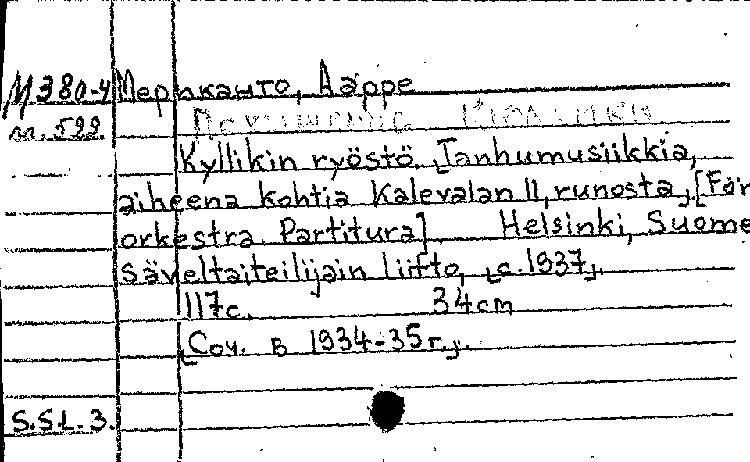 М 380-4 Мериканто, Аарре
м. 522
Kyllikin ryöstö. [Tanhumusiikkia,
aiheena kohtia Kalevalan II, runosta]. [För
orkestra. Partitura]. Helsinki, Suome
säveltaiteilijain liitto, [c. 1937].
117 с. 34 cm
[Соч. в 1934-35 г.].
S.S.L. 3.